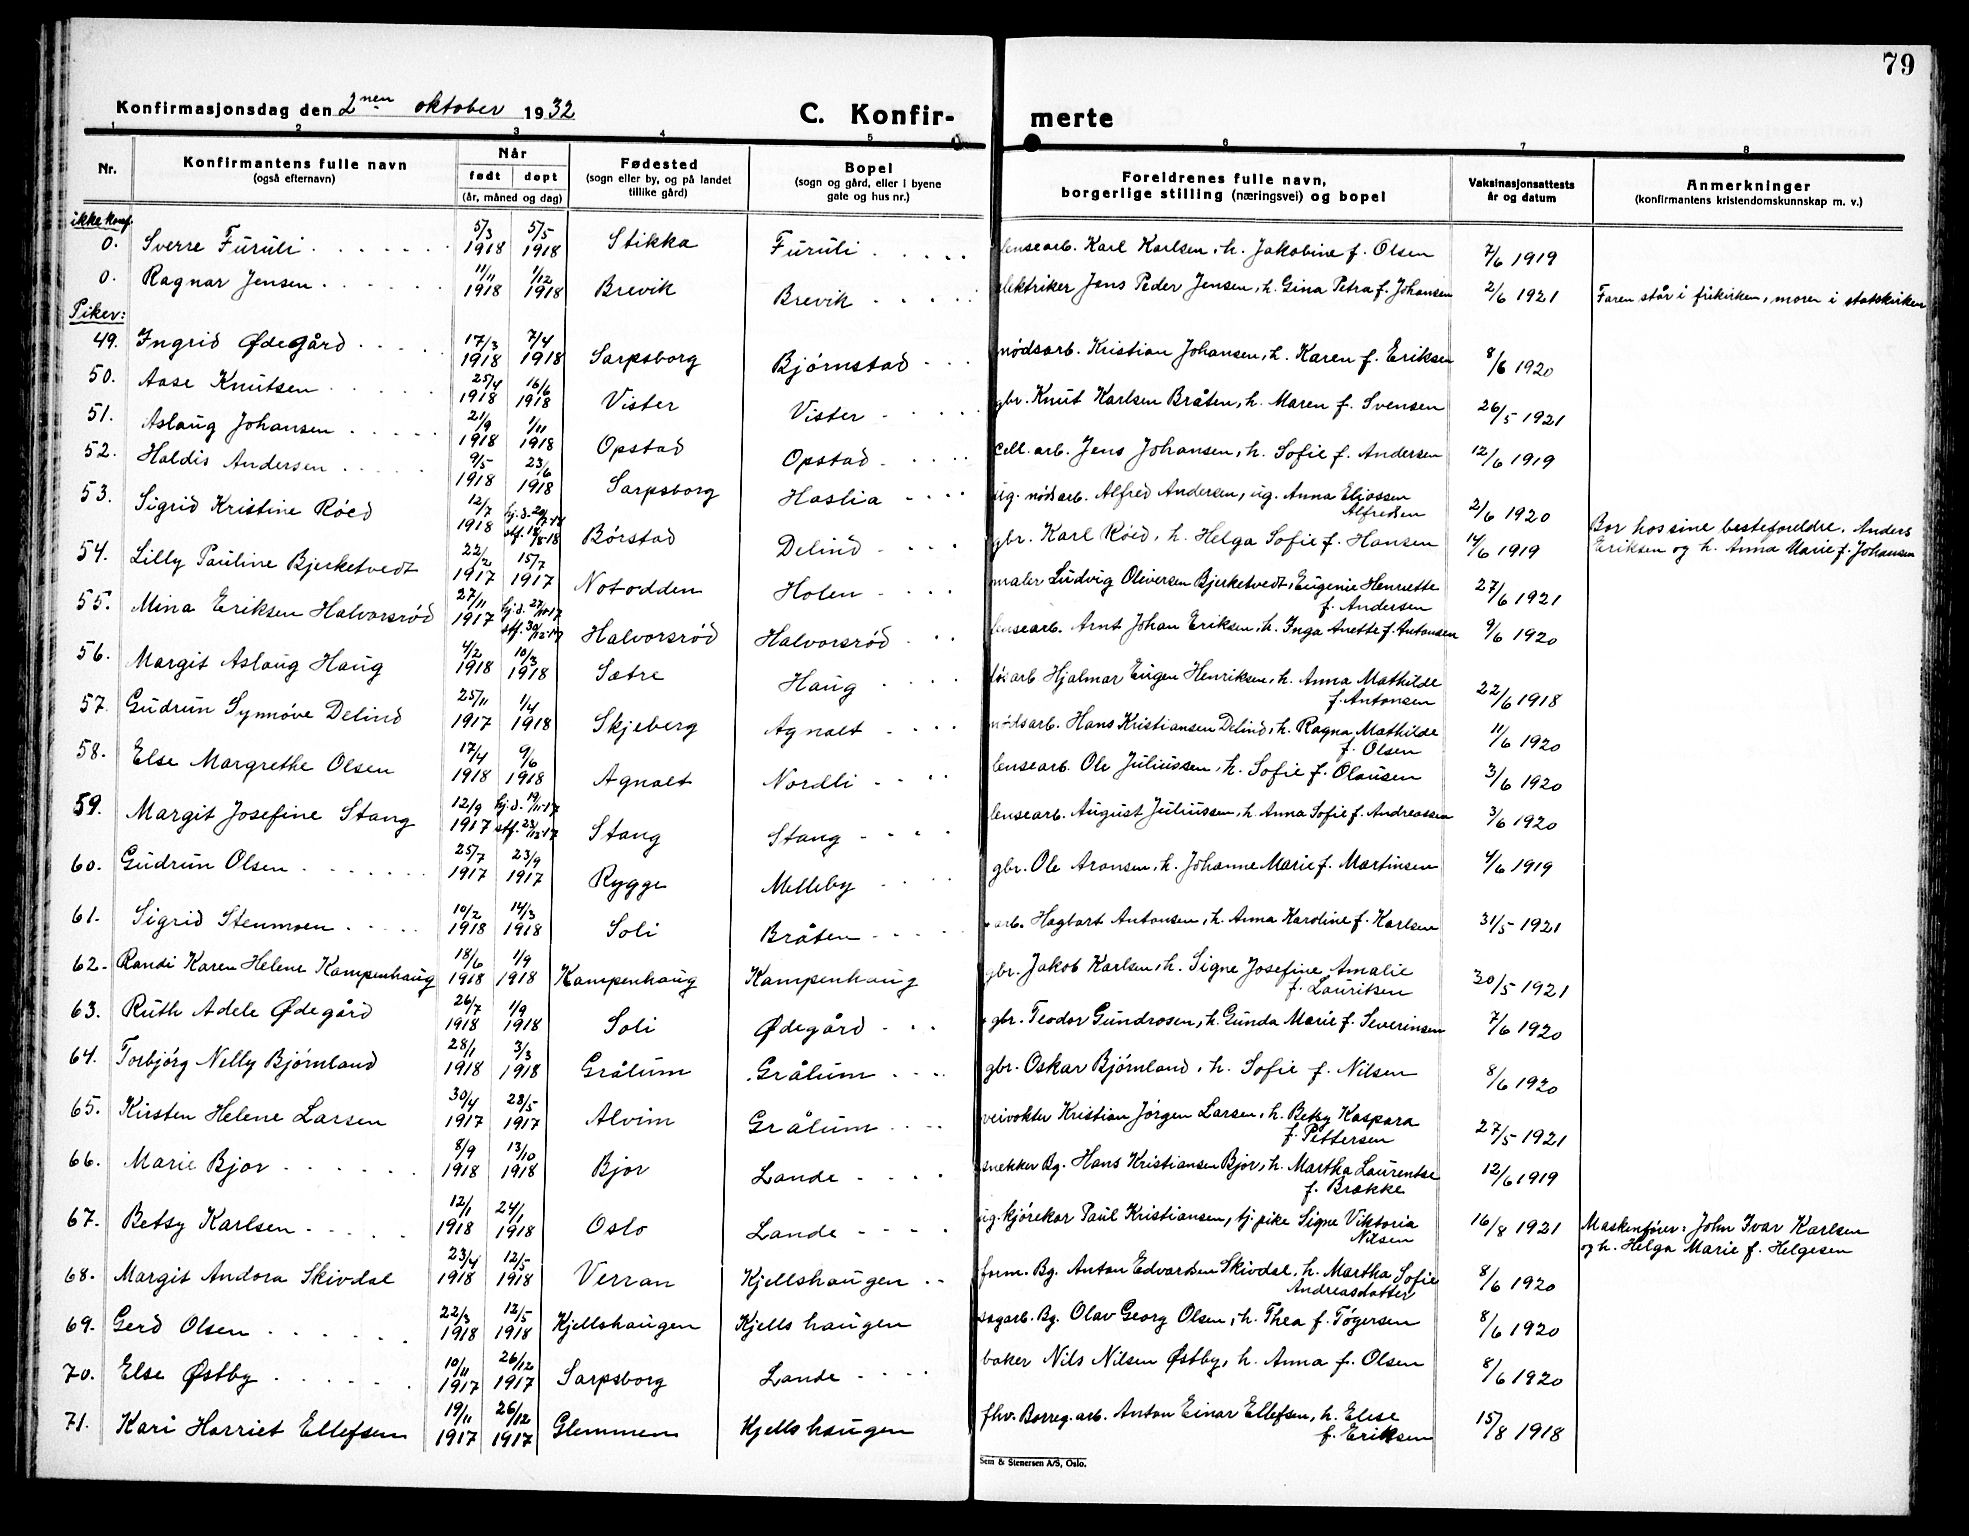 79
Konfirmasjonsdag den 2nen oktober 1932
C. Konfir-
merte
1 2 3 4 5 6 7 8
Nr. Konfirmantens fulle navn (også efternavn) Når født døpt (år, måned og dag) Fødested (sogn eller by, og på landet tillike gård) Bopel (sogn og gård, eller i byene gate og hus nr.) Foreldrenes fulle navn, borgerlige stilling (næringsvei) og bopel Vaksinasjonsattests år og datum Anmerkninger (konfirmantens kristendomskunnskap m. v.)
ikke konf.
0. Sverre Furuli 5/3 1918 5/5 1918 Stikka Furuli lensearb. Karl Karlsen, h. Jakobine f. Olsen 7/6 1919
0. Ragnar Jensen 11/11 1918 1/12 1918 Brevik Brevik elektriker Jens Peder Jensen, h. Gina Petra f. Johansen 2/6 1921 Faren står i frikirken, moren i statskirken
Piker:
49. Ingrid Ødegård 17/3 1918 7/4 1918 Sarpsborg Bjørnstad nødsarb. Kristian Johansen, h. Karen f. Eriksen 8/6 1920
50. Aase Knutsen 25/4 1918 16/6 1918 Vister Vister gbr. Knut Karlsen Bråten, h. Maren f. Svensen 26/5 1921
51. Aslaug Johansen 21/9 1918 1/11 1918 Opstad Opstad cell. arb. Jens Johansen, h. Sofie f. Andersen 12/6 1919
52. Haldis Andersen 9/5 1918 23/6 1918 Sarpsborg Haslia ug. nødsarb. Alfred Andersen, ug. Anna Eliassen Alfredsen 2/6 1920
53. Sigrid Kristine Røed 12/7 1918 hj.d. stf. Børstad Delind gbr. Karl Røed, h. Helga Sofie f. Hansen 14/6 1919 Bor hos sine besteforeldre, Anders Eriksen og h. Anna Marie f. Johansen
54. Lilly Pauline Bjerketvedt 22/2 1917 15/7 1917 Notodden Holen maler Ludvig Oliversen Bjerketvedt, Eugenie Henriette f. Andersen 27/6 1921
55. Mina Eriksen Halvorsrød 27/11 1917 hj.d. 27/11-17 stf. 30/12-17 Halvorsrød Halvorsrød lensearb. Arnt Johan Eriksen, h. Inga Anette f. Antonsen 9/6 1920
56. Margit Aslaug Haug 4/2 1918 10/3 1918 Sætre Haug arb Hjalmar Eugen Henriksen, h. Anna Mathilde f. Antonsen 22/6 1918
57. Gudrun Synnøve Delind 25/11 1917 1/4 1918 Skjeberg Agnalt nødsarb. Hans Kristiansen Delind, h. Ragna Mathilde f. Olsen 11/6 1920
58. Else Margrethe Olsen 17/4 1918 9/6 1918 Agnalt Nordli lensearb. Ole Juliussen, h. Sofie f. Olausen 3/6 1920
59. Margit Josefine Stang 12/9 1917 hj.d. 19/11-17 stf. 23/12-17 Stang Stang lensearb. August Juliussen, h. Anna Sofie f. Andreassen 3/6 1920
60. Gudrun Olsen 25/7 1917 23/9 1917 Rygge Melleby gbr. Ole Aronsen, h. Johanne Marie f. Martinsen 4/6 1919
61. Sigrid Stenmoen 10/2 1918 14/3 1918 Soli Bråten arb. Hagbart Antonsen, h. Anna Karoline f. Karlsen 31/5 1921
62. Randi Karen Helene Kampenhaug 18/6 1918 1/9 1918 Kampenhaug Kampenhaug gbr. Jakob Karlsen, h. Signe Josefine Amalie f. Lauritsen 30/5 1921
63. Ruth Adele Ødegård 26/7 1918 1/9 1918 Soli Ødegård gbr. Teodor Gundrosen, h. Gunda Marie f. Severinsen 7/6 1920
64. Torbjørg Nelly Bjørnland 28/1 1918 3/3 1918 Grålum Grålum gbr. Oskar Bjørnland, h. Sofie f. Nilsen 8/6 1920
65. Kirsten Helene Larsen 30/4 1917 28/5 1917 Alvim Grålum veivokter Kristian Jørgen Larsen, h. Betsy Kaspara f. Pettersen 27/5 1921
66. Marie Bjor 8/9 1918 13/10 1918 Bjor Lande snekker Bg. Hans Kristiansen Bjor, h. Martha Laurentse f. Brække 12/6 1919
67. Betsy Karlsen 12/1 1918 24/1 1918 Oslo Lande ug. kjørekar Paul Kristiansen, tj. pike Signe Viktoria Nilsen 16/8 1921 John Ivar Karlsen og h. Helga Marie f. Helgesen
68. Margit Andora Skivdal 23/4 1918 12/5 1918 Verran Kjellshaugen form. Bg. Anton Edvardsen Skivdal, h. Martha Sofie Andreasdatter 8/6 1920
69. Gerd Olsen 22/3 1918 12/5 1918 Kjellshaugen Kjellshaugen sagarb. Bg. Olav Georg Olsen, h. Thea f. Tøgersen 8/6 1920
70. Else Østby 10/11 1917 26/12 1917 Sarpsborg Lande baker Nils Nilsen Østby, h. Anna f. Olsen 8/6 1920
71. Kari Harriet Ellefsen 19/11 1917 26/12 1917 Glemmen Kjellshaugen fhv. Borreg. arb. Anton Einar Ellefsen, h. Elise f. Eriksen 15/8 1918
Sem & Stenersen A/S, Oslo.